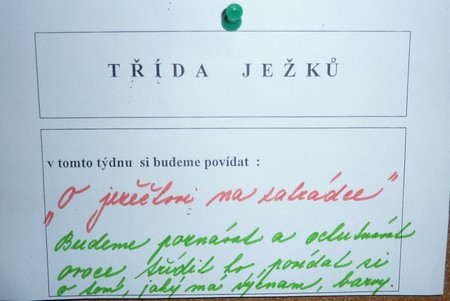 TŘÍDA JEŽKŮ
v tomto týdnu si budeme povídat :
„O ježečkovi na zahrádce"
Budeme poznávat a ochutnávat
ovoce, třídit ho, povídat si
o tom, jaký má význam, barvy.